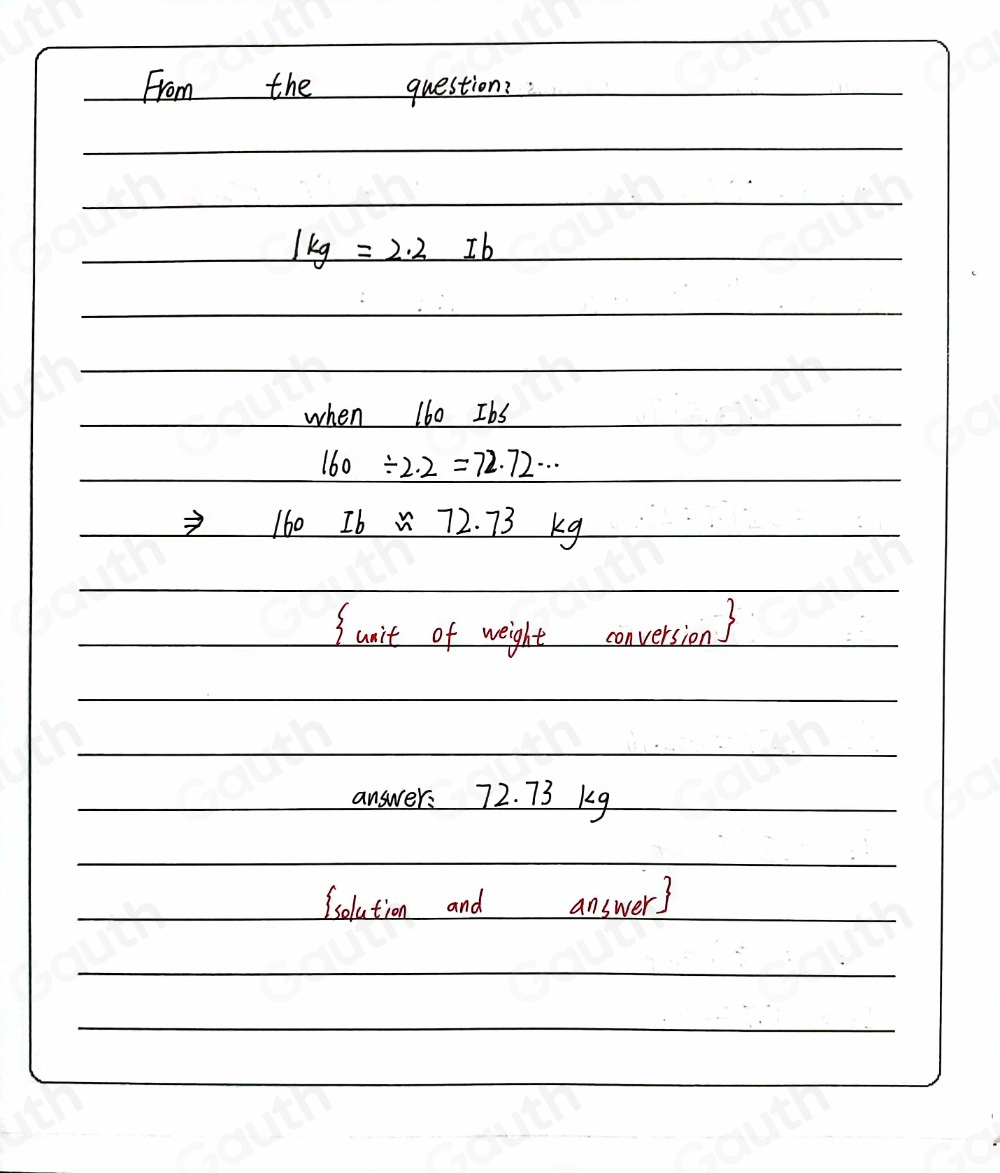 From the question:
1kg = 2.2 Ib
when 160 Ibs
160 ÷2.2 =72.72...
⇒ 160 Ib ≈ 72.73 kg
{unit of weight conversion}
answer: 72.73 kg
{solution and answer}
Gauth